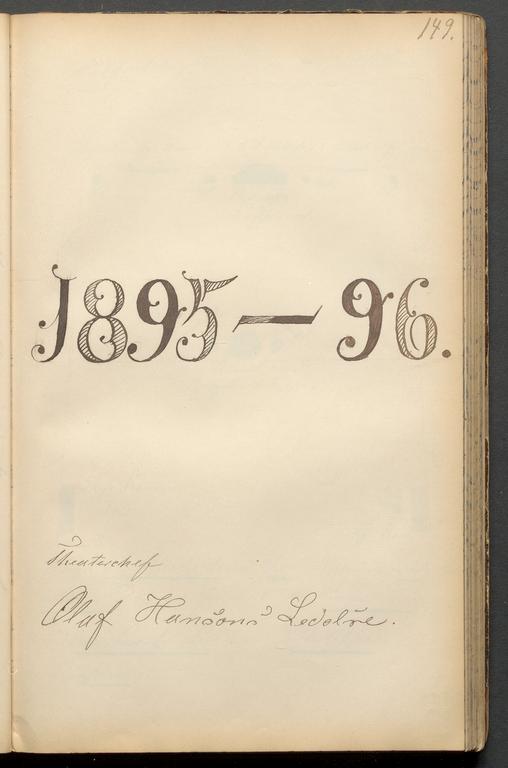 149.
1895 — 96.
Theaterchef
Olaf Hansons Ledelse.